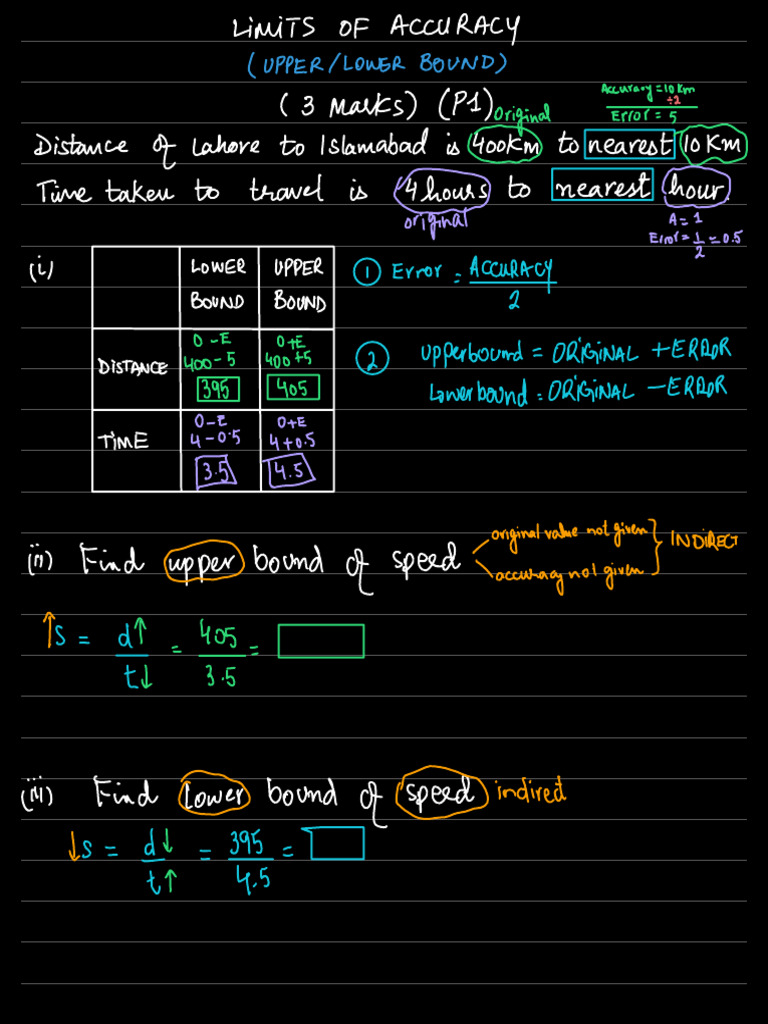 LIMITS OF ACCURACY
(UPPER/LOWER BOUND)
(3 Marks) (P1)
Original
Accuracy = 10 Km
÷2
Error = 5
Distance of Lahore to Islamabad is 400Km to nearest 10 Km
Time taken to travel is 4 hours to nearest hour.
original
A = 1
Error = 1/2 = 0.5
(i)
LOWER BOUND UPPER BOUND
DISTANCE
O - E O+E
400 - 5 400 + 5
395 405
TIME
O - E O+E
4 - 0.5 4 + 0.5
3.5 4.5
① Error = ACCURACY/2
② upperbound = ORIGINAL + ERROR
Lowerbound = ORIGINAL - ERROR
(ii) Find upper bound of speed
original value not given
accuracy not given
} INDIRECT
↑S = d↑/t↓ = 405/3.5 =
(iii) Find lower bound of speed indirect
↓S = d↓/t↑ = 395/4.5 =